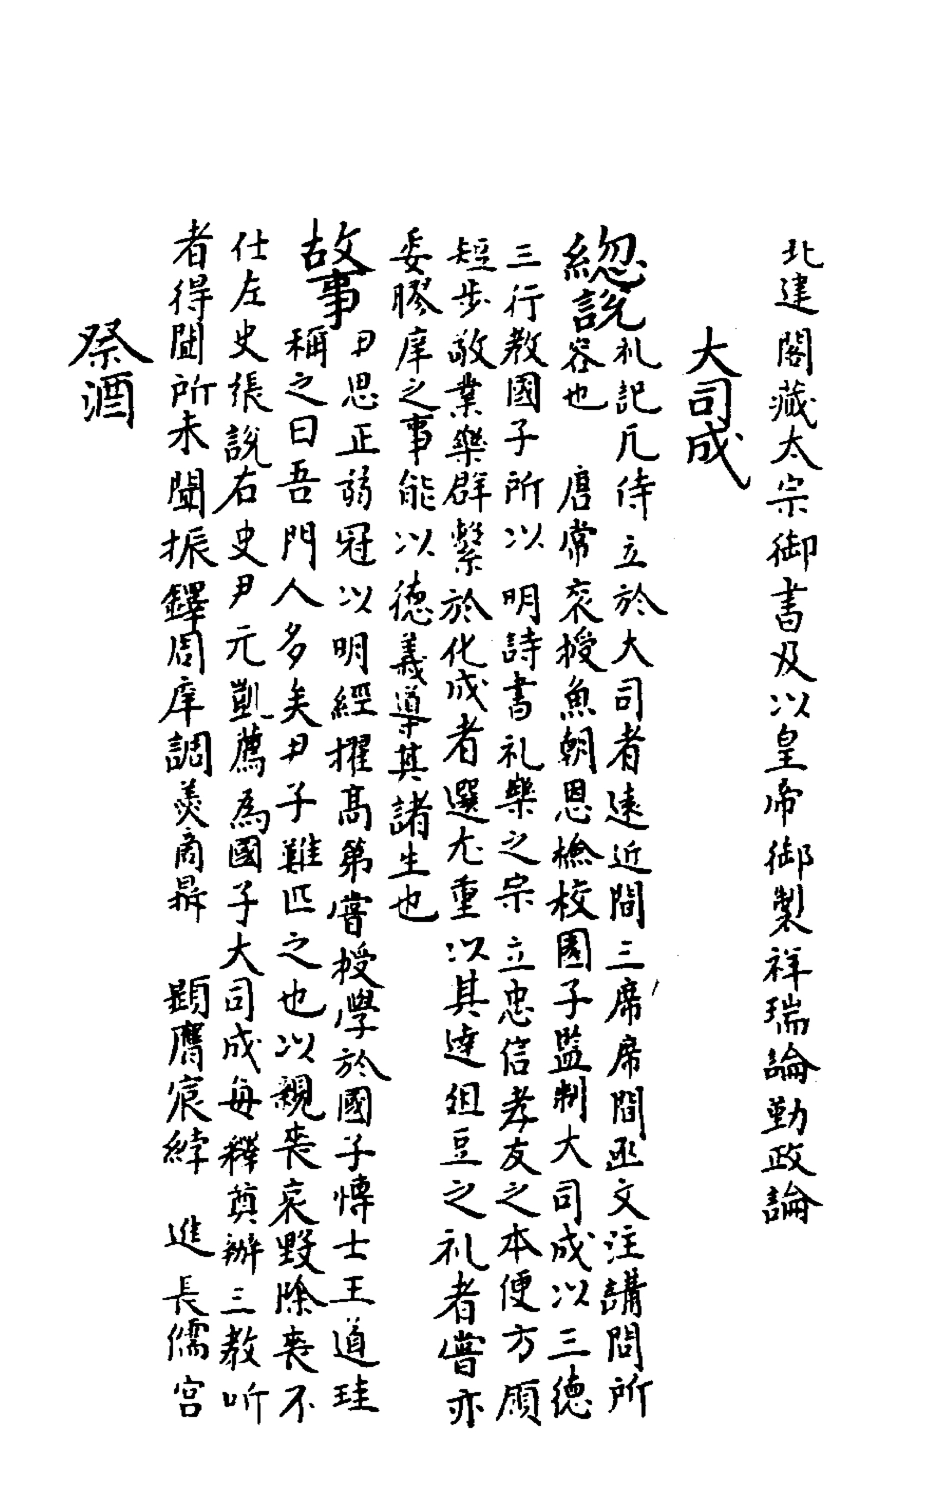 北建閣藏太宗御書及以皇帝御製祥瑞論勤政論
大司成
緫說
礼記凡侍立於大司者遠近間三席席間丞文注講問所
容也　唐常衮授魚朝恩檢校國子監制大司成以三德
三行教國子所以明詩書礼樂之宗立忠信孝友之本便方頋
短步敬業樂群繫於化成者選尤重以其達俎豆之礼者嘗亦
委膠庠之事能以德義導其諸生也
故事
尹思正弱冠以明經擢高第嘗授學於國子博士王道珪
稱之曰吾門人多矣尹子難匹之也以親喪哀毀除喪不
仕左史張說右史尹元凱薦為國子大司成每釋奠辦三教听
者得聞所未聞振鐸周庠調羹商鼎　顯膺宸綍　進長儒宫
祭酒